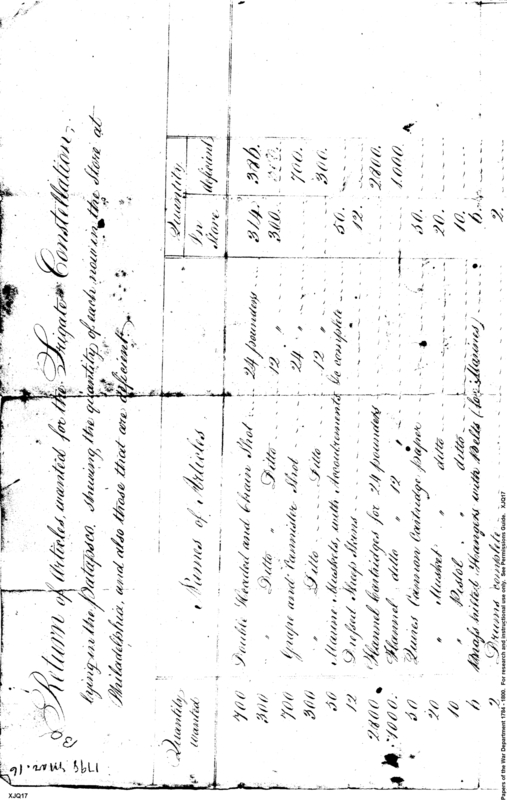 1798 Mar. 16
Return of Articles, wanted for the Frigate Constellation,
lying in the Patapsco, shewing the quantity of each now in the Store at
Philadelphia, and also those that are deficient,
Quantity wanted | Names of Articles | Quantity
In Store | deficient
700 Double Headed and Chain Shot 24 pounders 314. 386.
300 " Ditto " Ditto 12 " 300.
700 Grape and Cannister Shot 24 " 700.
300 " Ditto " Ditto 12 " 300.
50 Marine Muskets, with Accoutrements &c complete 50.
12 12.
2800 Flannel Cartridges for 24 pounders 2800.
1000. Flannel ditto " 12 " 1000
50 Quires Cannon Cartridge paper 50.
20 " Musket " ditto 20.
10 " Pistol " ditto 10.
6 Brass hilted Hangers with Belts (for Marines) 6.
2 Drums complete 2.
XJQ17
Papers of the War Department 1784 - 1800. For research and instructional use only. See Permissions Guide. XJQ17